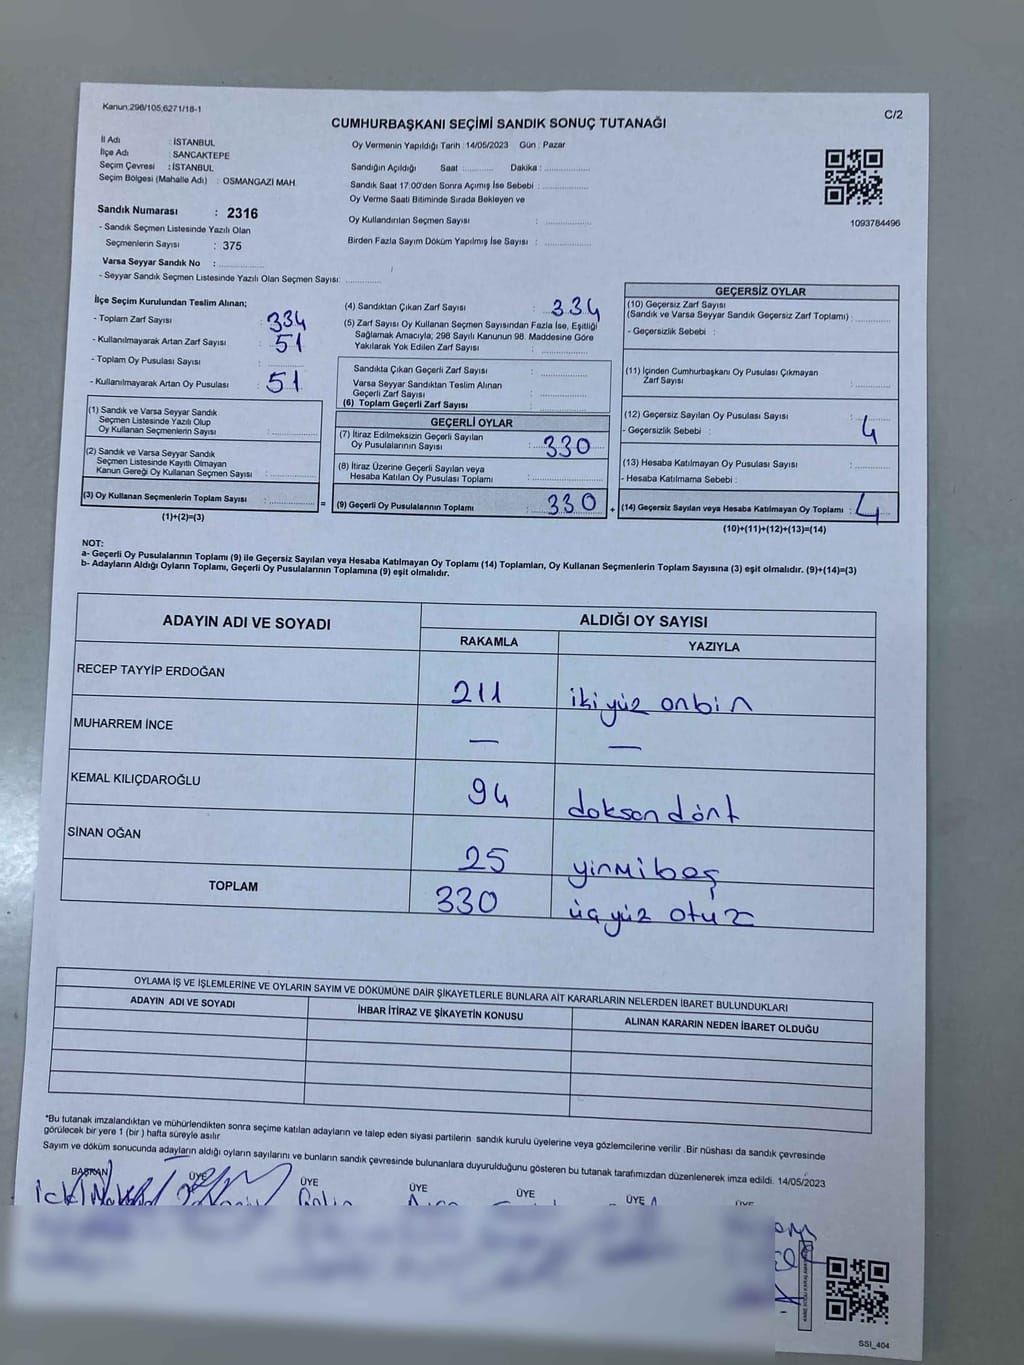 Kanun:298/105,6271/18-1
C/2
CUMHURBAŞKANI SEÇİMİ SANDIK SONUÇ TUTANAĞI
İl Adı : İSTANBUL
İlçe Adı : SANCAKTEPE
Seçim Çevresi : İSTANBUL
Seçim Bölgesi (Mahalle Adı) : OSMANGAZI MAH.
Sandık Numarası : 2316
- Sandık Seçmen Listesinde Yazılı Olan
Seçmenlerin Sayısı : 375
Varsa Seyyar Sandık No :
- Seyyar Sandık Seçmen Listesinde Yazılı Olan Seçmen Sayısı:
Oy Vermenin Yapıldığı Tarih :14/05/2023 Gün : Pazar
Sandığın Açıldığı Saat : Dakika :
Sandık Saat 17:00'den Sonra Açımış İse Sebebi :
Oy Verme Saati Bitiminde Sırada Bekleyen ve
Oy Kullandırılan Seçmen Sayısı :
Birden Fazla Sayım Döküm Yapılmış İse Sayısı :
1093784496
İlçe Seçim Kurulundan Teslim Alınan;
- Toplam Zarf Sayısı : 334
- Kullanılmayarak Artan Zarf Sayısı : 51
- Toplam Oy Pusulası Sayısı :
- Kullanılmayarak Artan Oy Pusulası : 51
(1) Sandık ve Varsa Seyyar Sandık
Seçmen Listesinde Yazılı Olup
Oy Kullanan Seçmenlerin Sayısı :
(2) Sandık ve Varsa Seyyar Sandık
Seçmen Listesinde Kayıtlı Olmayan
Kanun Gereği Oy Kullanan Seçmen Sayısı :
(3) Oy Kullanan Seçmenlerin Toplam Sayısı : =
(1)+(2)=(3)
(4) Sandıktan Çıkan Zarf Sayısı : 334
(5) Zarf Sayısı Oy Kullanan Seçmen Sayısından Fazla İse, Eşitliği
Sağlamak Amacıyla; 298 Sayılı Kanunun 98. Maddesine Göre
Yakılarak Yok Edilen Zarf Sayısı :
Sandıkta Çıkan Geçerli Zarf Sayısı :
Varsa Seyyar Sandıktan Teslim Alınan
Geçerli Zarf Sayısı :
(6) Toplam Geçerli Zarf Sayısı :
GEÇERLİ OYLAR
(7) İtiraz Edilmeksizin Geçerli Sayılan
Oy Pusulalarının Sayısı : 330
(8) İtiraz Üzerine Geçerli Sayılan veya
Hesaba Katılan Oy Pusulası Toplamı :
(9) Geçerli Oy Pusulalarının Toplamı : 330 +
GEÇERSİZ OYLAR
(10) Geçersiz Zarf Sayısı
(Sandık ve Varsa Seyyar Sandık Geçersiz Zarf Toplamı) :
- Geçersizlik Sebebi :
(11) İçinden Cumhurbaşkanı Oy Pusulası Çıkmayan
Zarf Sayısı :
(12) Geçersiz Sayılan Oy Pusulası Sayısı : 4
- Geçersizlik Sebebi :
(13) Hesaba Katılmayan Oy Pusulası Sayısı :
- Hesaba Katılmama Sebebi :
(14) Geçersiz Sayılan veya Hesaba Katılmayan Oy Toplamı : 4
(10)+(11)+(12)+(13)=(14)
NOT:
a- Geçerli Oy Pusulalarının Toplamı (9) ile Geçersiz Sayılan veya Hesaba Katılmayan Oy Toplamı (14) Toplamları, Oy Kullanan Seçmenlerin Toplam Sayısına (3) eşit olmalıdır. (9)+(14)=(3)
b- Adayların Aldığı Oyların Toplamı, Geçerli Oy Pusulalarının Toplamına (9) eşit olmalıdır.
ADAYIN ADI VE SOYADI
ALDIĞI OY SAYISI
RAKAMLA YAZIYLA
RECEP TAYYİP ERDOĞAN 211 ikiyüz onbir
MUHARREM İNCE — —
KEMAL KILIÇDAROĞLU 94 doksan dört
SİNAN OĞAN 25 yirmibeş
TOPLAM 330 üçyüz otuz
OYLAMA İŞ VE İŞLEMLERİNE VE OYLARIN SAYIM VE DÖKÜMÜNE DAİR ŞİKAYETLERLE BUNLARA AİT KARARLARIN NELERDEN İBARET BULUNDUKLARI
ADAYIN ADI VE SOYADI İHBAR İTİRAZ VE ŞİKAYETİN KONUSU ALINAN KARARIN NEDEN İBARET OLDUĞU
*Bu tutanak imzalandıktan ve mühürlendikten sonra seçime katılan adayların ve talep eden siyasi partilerin sandık kurulu üyelerine veya gözlemcilerine verilir .Bir nüshası da sandık çevresinde
görülecek bir yere 1 (bir ) hafta süreyle asılır.
Sayım ve döküm sonucunda adayların aldığı oyların sayılarını ve bunların sandık çevresinde bulunanlara duyurulduğunu gösteren bu tutanak tarafımızdan düzenlenerek imza edildi. 14/05/2023
BAŞKAN ÜYE ÜYE ÜYE ÜYE ÜYE ÜYE
SSI_404